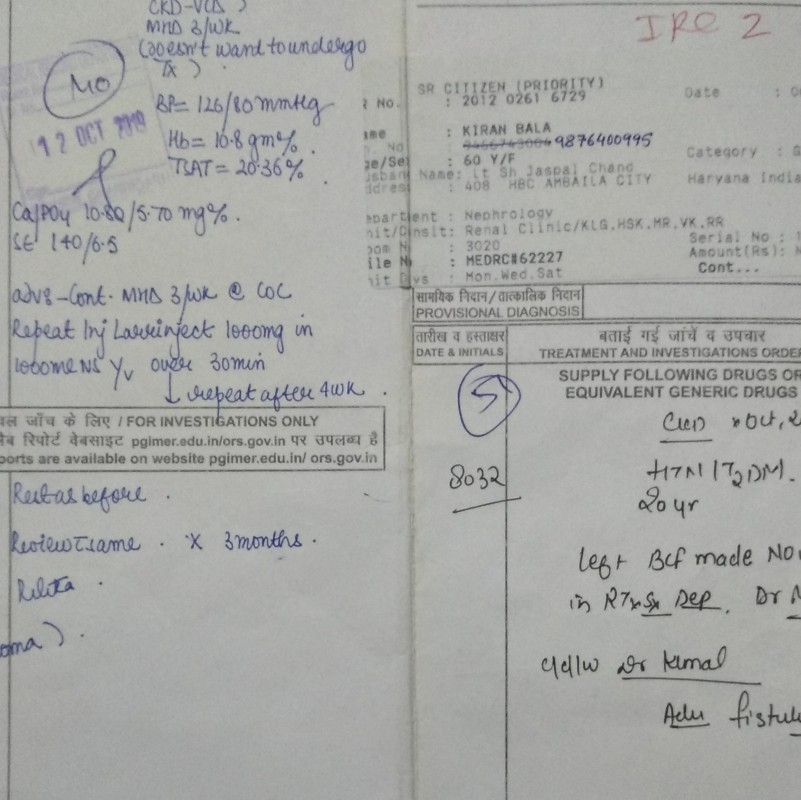 CKD-V(D)
MHD 3/WK
(Doesn't want to undergo
Tx).
MO
12 OCT 2019
BP= 126/80 mmHg
Hb= 10.8 gm%.
TSAT= 20.36%
Ca/PO4 10.80/5.70 mg%.
SE 140/6.5
adv8-Cont. MHD 3/WK @ COC
Repeat Inj 1000mg in
over 30min
↓ repeat after 4WK.
ल जाँच के लिए / FOR INVESTIGATIONS ONLY
ब रिपोर्ट वेबसाइट pgimer.edu.in/ors.gov.in पर उपलब्ध है
ports are available on website pgimer.edu.in/ ors.gov.in
Rest as before.
Review same. X 3months.
oma).
IRC 2
SR CITIZEN (PRIORITY)
No. : 2012 0261 6729 Date :
ame : KIRAN BALA
. No 9876400995
ge/Se : 60 Y/F Category : G
usban Name: Lt Sh Jaspal Chand
ddres : 408 HBC AMBAILA CITY Haryana India
epartment : Nephrology
nit/Consit: Renal Clinic/KLG,HSK,MR,VK,RR
oom N : 3020 Serial No : 1
ile N : MEDRC#62227 Amount(Rs): N
nit Days : Mon,Wed,Sat Cont...
सामयिक निदान/तात्कालिक निदान
PROVISIONAL DIAGNOSIS
तारीख व हस्ताक्षर
DATE & INITIALS
बताई गई जांचें व उपचार
TREATMENT AND INVESTIGATIONS ORDER
SUPPLY FOLLOWING DRUGS OR
EQUIVALENT GENERIC DRUGS
5
CKD x Oct, 2
8032
HTN/T2DM.
20 yr
left BCF made No
in RTxSx Dep, Dr
c/d/w Dr Kamal
Adv fistul